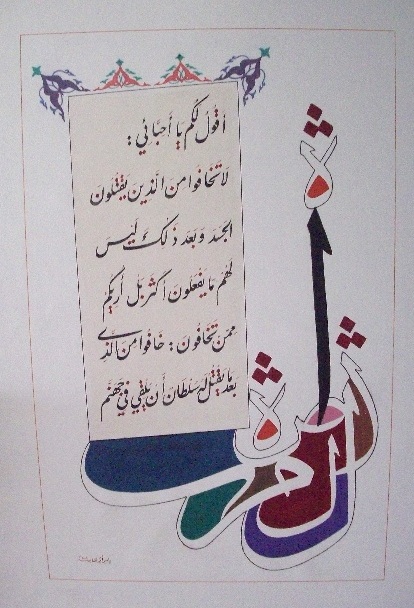 أقول لكم يا أحبائي :
لا تخافوا من الذين يقتلون
الجسد وبعد ذلك ليس
لهم ما يفعلون أكثر بل أريكم
ممن تخافون : خافوا من الذي
بعد ما يقتل له سلطان أن يلقي في جهنم